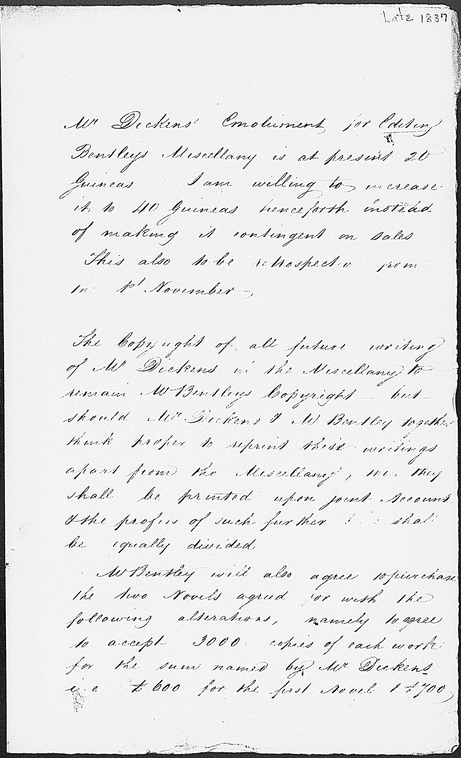 Late 1837
Mr Dickens' Emolument for Editing
Bentleys Miscellany is at present 20
Guineas I am willing to increase
it to 40 Guineas henceforth instead
of making it contingent on sales
This also to be retrospective from
1st November
The Copyright of all future writing
of Mr Dickens in the Miscellany to
remain Mr Bentleys Copyright but
should Mr Dickens & Mr Bentley together
think proper to reprint these writings
apart from the Miscellany, they
shall be printed upon joint Account
& the profits of such further shall
be equally divided
Mr Bentley will also agree to purchase
the two Novels agreed for with the
following alterations, namely to agree
to accept 3000 copies of each work
for the sum named by Mr Dickens
i.e £600 for the first Novel & £700